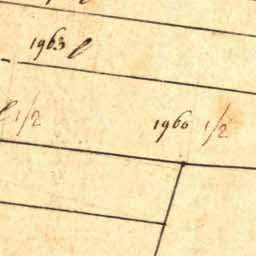 1963
1/2
1960 1/2